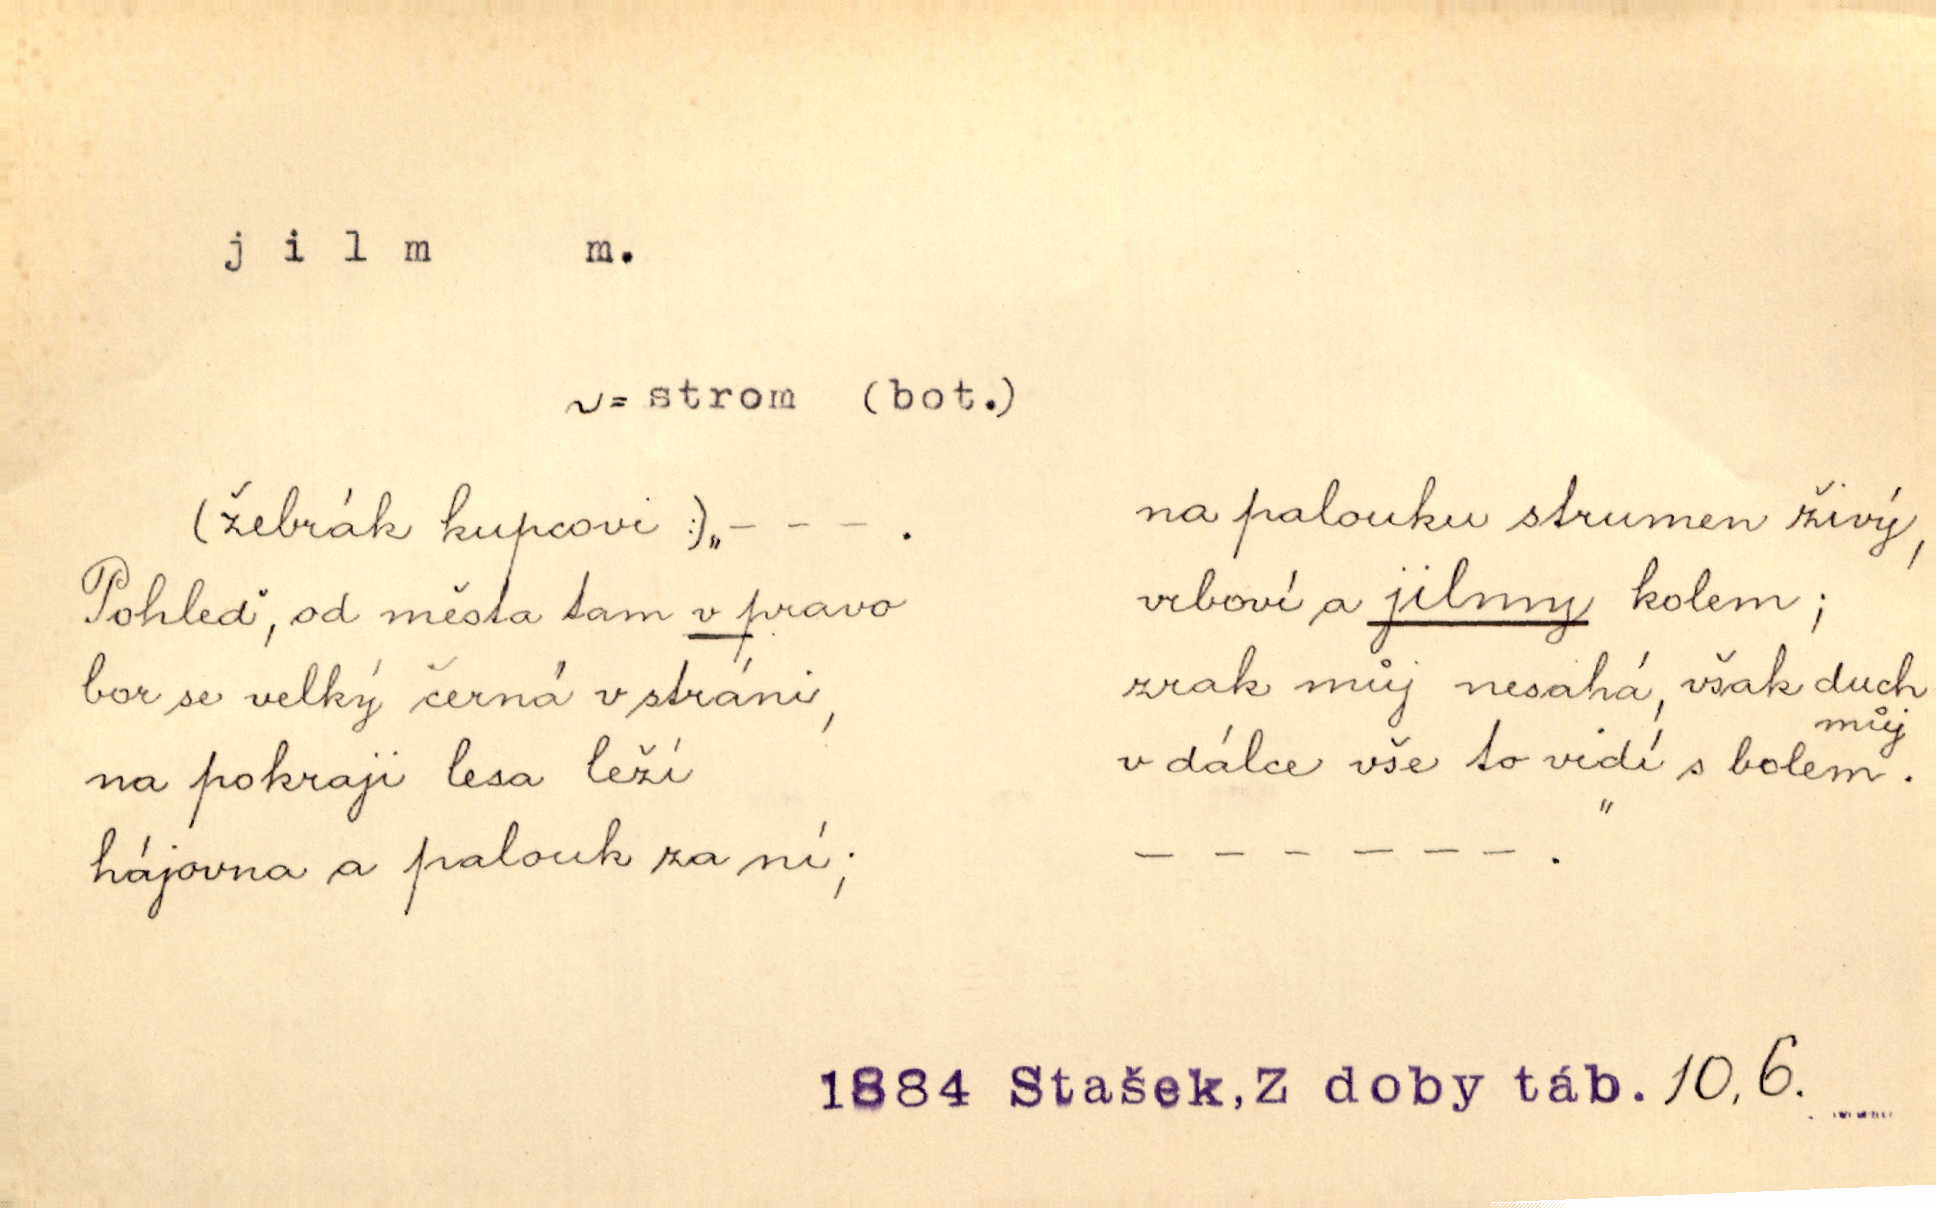 j i l m m.
~= strom (bot.)
(žebrák kupcovi :) „– – – .
Pohleď, od města tam v pravo
bor se velký černá v stráni,
na pokraji lesa leží
hájovna a palouk za ní;
na palouku strumen živý,
vrboví a jilmy kolem;
zrak můj nesahá, však duch
můj
v dálce vše to vidí s bolem.
"
– – – – – – .
1884 Stašek, Z doby táb. 10, 6.